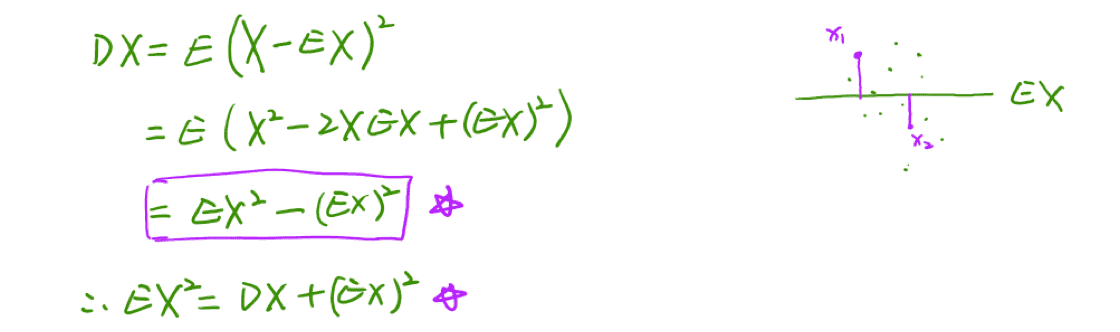 DX = E(X-EX)²
= E(X²-2XEX+(EX)²)
= EX²-(EX)² ☆
∴ EX² = DX+(EX)² ☆
x₁
EX
x₂